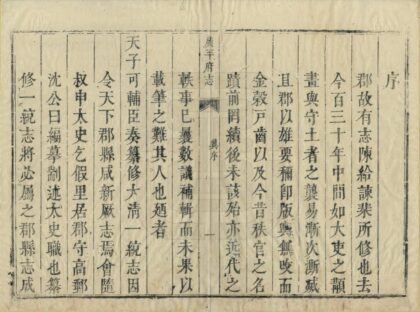 序
郡故有志陳給諫棐所修也去
今百三十年中間如大吏之顓
畫與守土者之襲易漸次漸贓
且郡以雄要稱即版輿鎮
金穀戸齒以及今昔秩官之名
蹟前罔績後未該殆亦近代之
軼事已屢數議補輯而未果以
載筆之難其人也廼者
天子可輔臣奏纂修大清一統志因
令天下郡縣咸新厥志焉會隨
叔申太史乞假里居郡守高郵
沈公曰編摹制述太史職也纂
修一統志將必屬之郡縣志成
廣平府志
冀序
一